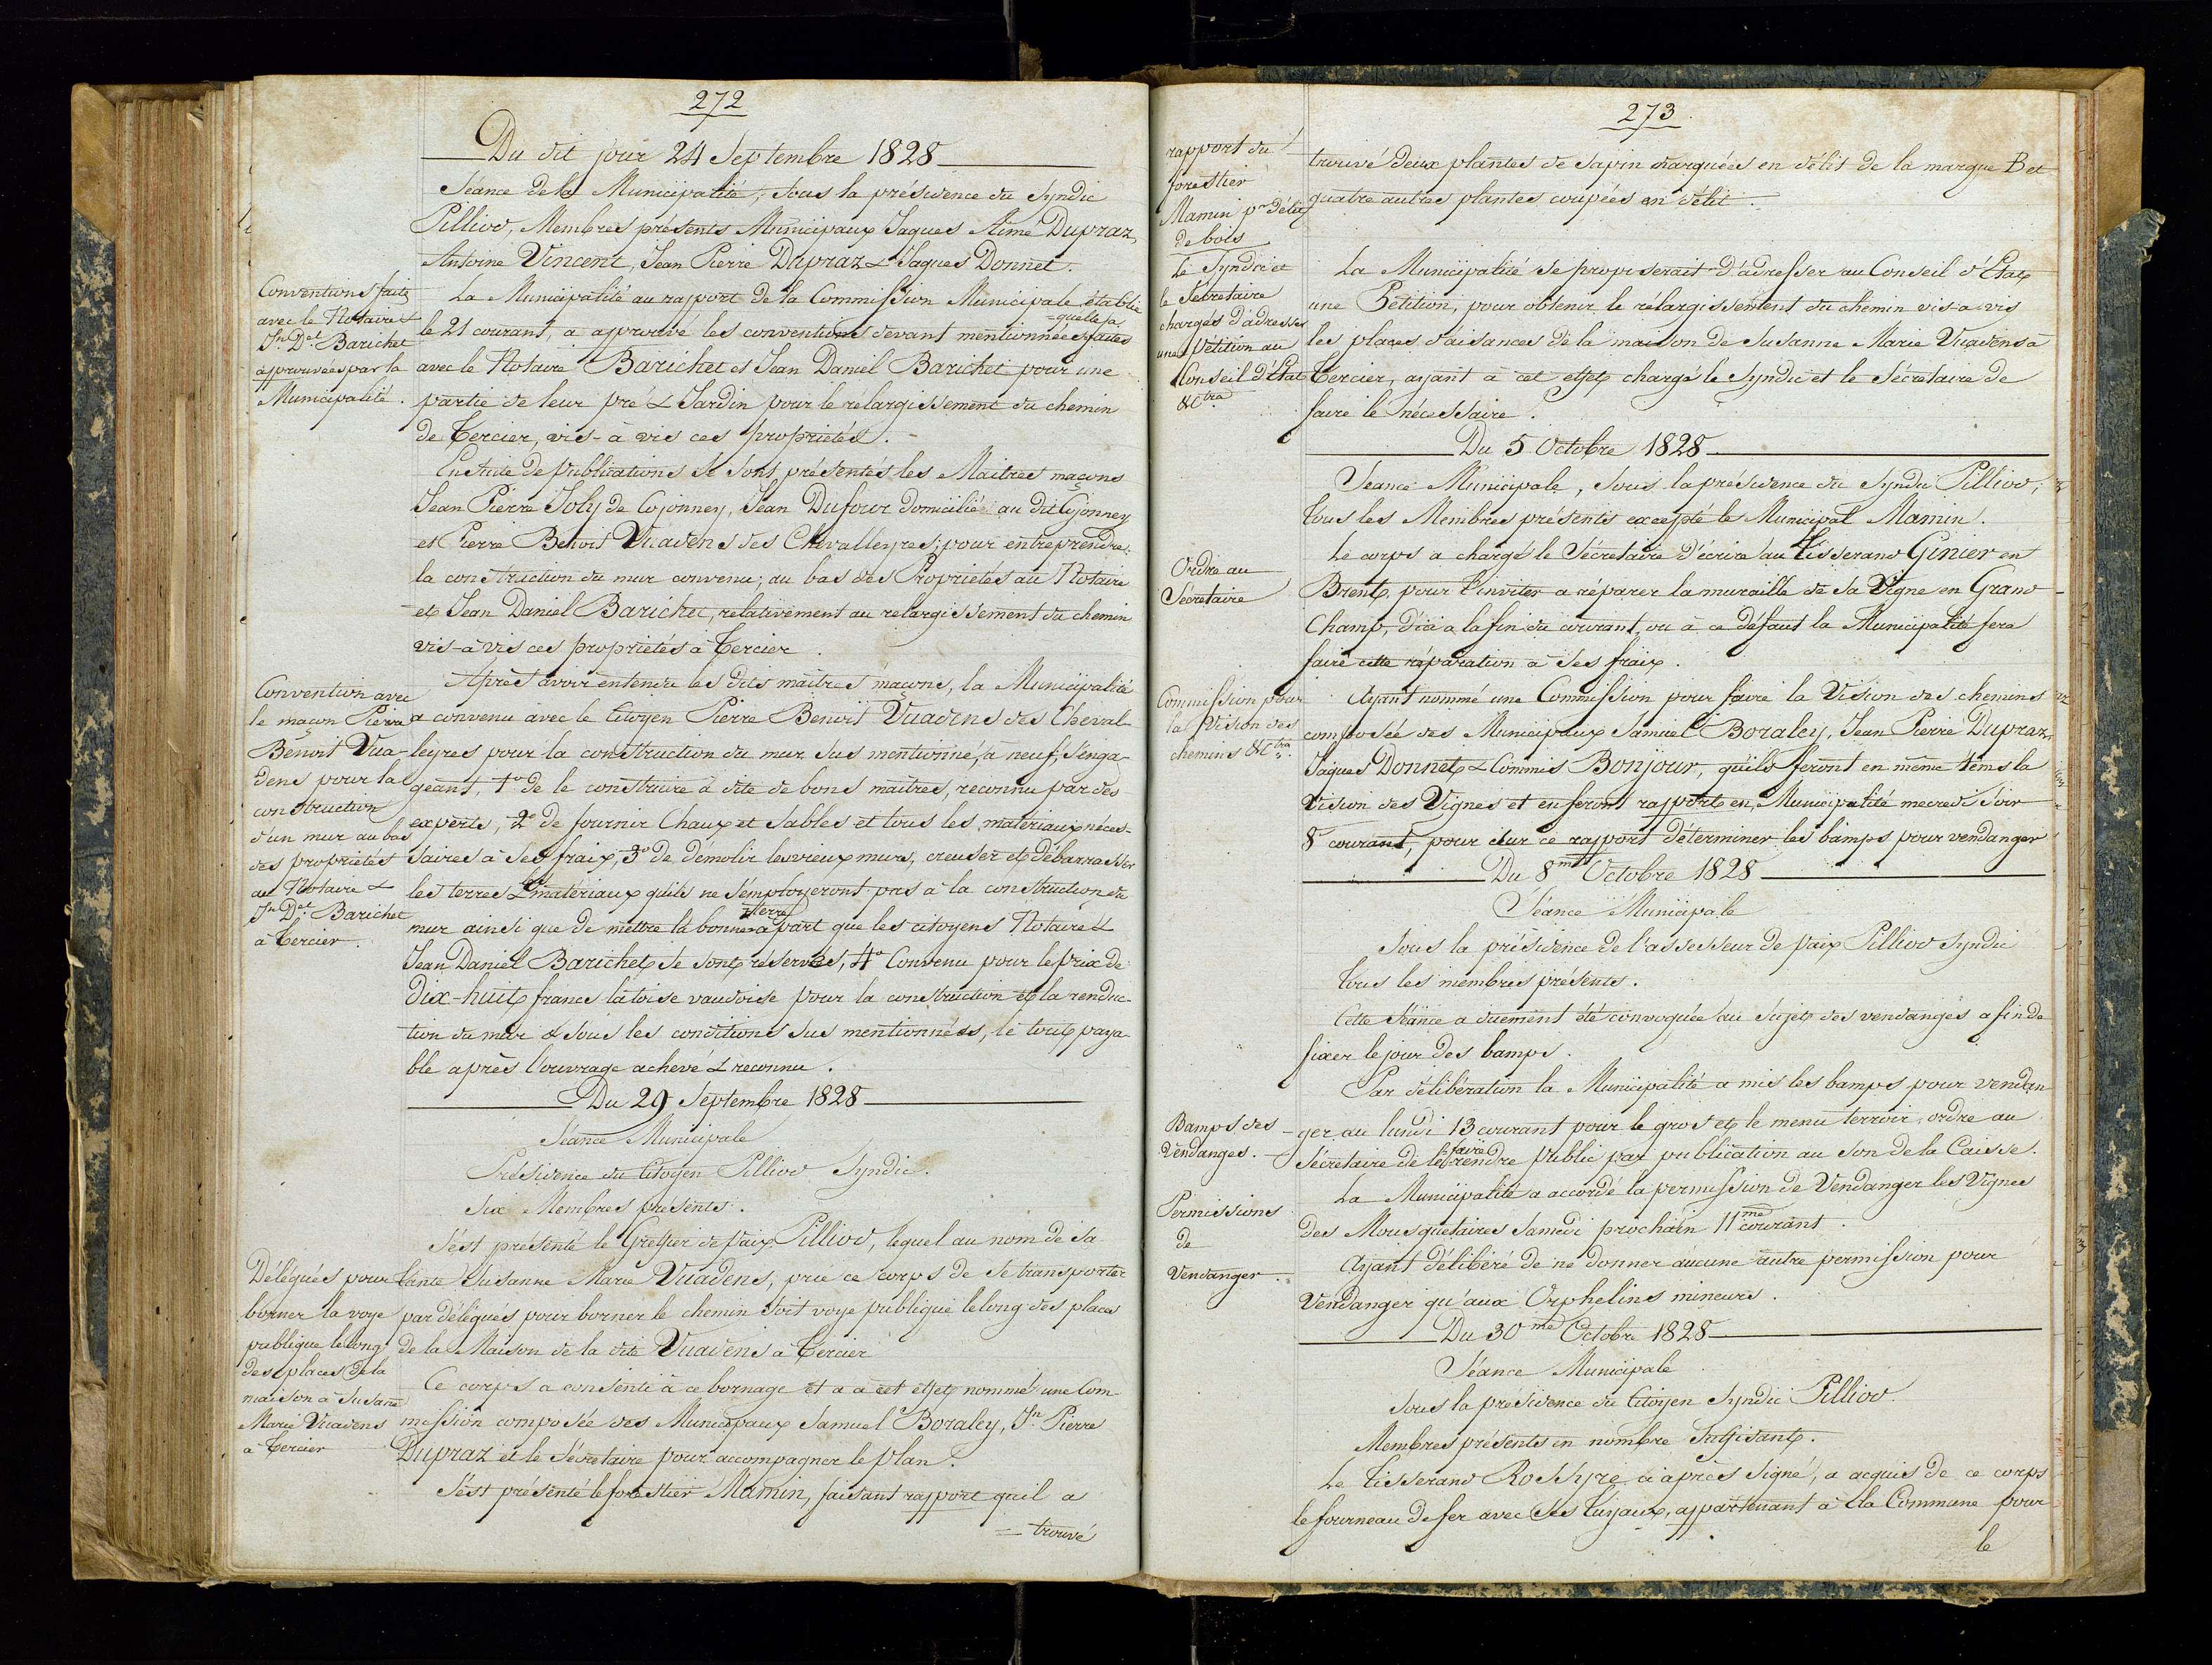 272
Du dit jour 24 Septembre 1828
Séance de la Municipalité, sous la présidence du Syndic
Pilliod, Membres présents Municipaux Jaques Aimé Dupraz,
Antoine Vincent, Jean Pierre Dupraz & Jaques Donnet.
Conventions faites
avec le Notaire &
Jn. Del. Barichet
approuvées par la
Municipalité.
La Municipalité au rapport de la Commission Municipale établie
le 21 courant, a approuvé les conventions devant mentionnées =quelle a faites
avec le Notaire Barichet et Jean Daniel Barichet pour une
partie de leur pré & Jardin pour le relargissement du chemin
de Tercier, vis-à vis ces propriétés.
Ensuite de publications se sont présentés les Maitres maçons
Jean Pierre Joly de Cojonney, Jean Dufour domicilié au dit Cojonney
et Pierre Benoit Vuadens des Chevalleyres; pour entreprendre
la construction du mur convenu; au bas des Propriétés au Notaire
et Jean Daniel Barichet, relativement au relargissement du chemin
vis-à vis ces propriétés à Tercier.
Convention avec
le maçon Pierre
Benoit Vua-
dens pour la
construction
d'un mur au bas
des propriétés
au Notaire &
Jn. Del. Barichet
à Tercier.
Après avoir entendu les dits maîtres maçons, la Municipalité
a convenu avec le Citoyen Pierre Benoit Vuadens des Cheval-
leyres pour la construction du mur sus mentionné, à neuf, s'enga-
geant, 1o de le construire à dite de bons maitres, reconnu par des
experts, 2o de fournir Chaux et Sables et tous les matériaux néces-
saires à ses fraix, 3o de démolir les vieux murs, creuser et débarrasser
les terres & matériaux qu'ils ne s'employeront pas à la construction du
mur ainsi que de mettre la bonne terre à part que les citoyens Notaire &
Jean Daniel Barichet se sont réservés, 4o Convenu pour le prix de
Dix-huit francs la toise vaudoise pour la construction et la renduc-
tion du mur & sous les conditions sus mentionnées, le tout paya-
ble après l'ouvrage achevé & reconnu.
Du 29 Septembre 1828
Séance Municipale
Présidence du Citoyen Pilliod Syndic.
Six Membres présents.
Délégués pour
borner la voye
publique le long
des places de la
maison à Susane
Marie Vuadens
à Tercier
S'est présenté le Greffier de paix Pilliod, lequel au nom de sa
tante Susanne Marie Vuadens, prie ce corps de se transporter
par délégués pour borner le chemin soit voye publique le long des places
de la Maison de la dite Vuadens à Tercier
Ce corps a consenti à ce bornage et a à cet effet nommé une Com-
mission composée des Municipaux Samuel Boraley, Jn Pierre
Dupraz et le Sécretaire pour accompagner le plan.
S'est présenté le forestier Mamin, faisant rapport quil a
= trouvé
273
rapport du
forestier
Mamin pr délit
de bois
trouvé deux plantes de sapin marquées en délit de la marque B et
quatre autres plantes coupées en délit.
Le Syndic et
le Sécretaire
chargés d'adresser
une pétition au
Conseil d'Etat
&Ctra
La Municipalité se proposerait d'adresser au Conseil d'Etat
une Pétition, pour obtenir le rélargissement du chemin vis-à-vis
les places d'aisances de la maison de Susanne Marie Vuadens à
Tercier, ayant à cet effet chargé le Syndic et le Sécretaire de
faire le nécessaire.
Du 5 Octobre 1828
Séance Municipale, sous la présidence du Syndic Pilliod,
tous les Membres présents excepté le Municipal Mamin.
Ordre au
Sécretaire
Le corps a chargé le Sécretaire d'écrire au Tisserand Ginier en
Brent, pour l'inviter a réparer la muraille de sa Vigne en Grand-
Champ, d'ici a la fin du courant, ou à ce défaut la Municipalité fera
faire cette réparation à ses fraix.
Commission pour
la Vision des
chemins &Ctra.
Ayant nommé une Commission pour faire la Vision des chemins
composée des Municipaux Samuel Boraley, Jean Pierre Dupraz,
Jaques Donnet & Commis Bonjour, quils feront en même tems la
Vision des Vignes et en feront rapport en Municipalité mecredi soir
8 courant, pour sur ce rapport déterminer les bamps pour vendanger
Du 8me Octobre 1828
Séance Municipale
sous la présidence de l'assesseur de paix Pilliod Syndic
tous les membres présents.
Cette Séance a duement été convoquée au sujet des vendanges afin de
fixer le jour des bamps.
Bamps des
Vendanges.
Par délibération la Municipalité a mis les bamps pour vendan-
ger au lundi 13 courant pour le gros et le menu terroir, ordre au
Sécretaire de le faire rendre public par publication au son de la Caisse.
Permissions
de
Vendanger.
La Municipalité a accordé la permission de Vendanger les Vignes
des Mousquetaires Samedi prochain 11me courant.
Ayant délibéré de ne donner aucune autre permission pour
Vendanger qu'aux Orphelins mineurs.
Du 30me Octobre 1828
Séance Municipale
sous la présidence du Citoyen Syndic Pilliod
Membres présents en nombre suffisant.
Le Tisserand Rossyre ci après signé, a acquis de ce corps
le fourneau de fer avec ses tuyaux, appartenant à la Commune pour
le